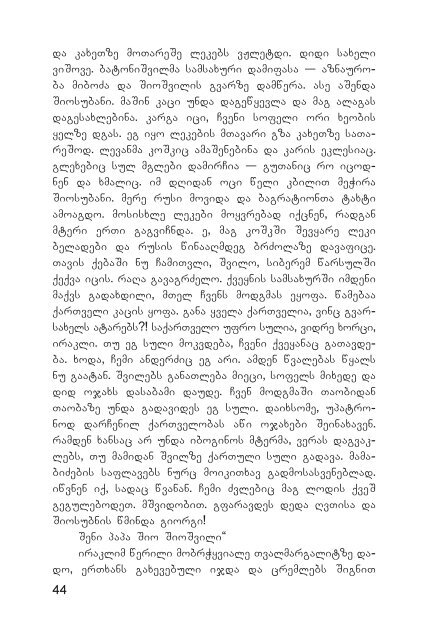 და კახეთზე მოთარეშე ლეკებს ვჟლეტდი. დიდი სახელი
ვიშოვე. ბატონიშვილმა სამსახური დამიფასა — აზნაურო-
ბა მიბოძა და შიოშვილის გვარზე დამწერა. ასე აშენდა
შიოსუბანი. მაშინ კაცი უნდა დაგეწყევლა და მაგ ალაგას
დაგესახლებინა. კარგა იცი, ჩვენი სოფელი ორი ხეობის
ყელზე დგას. ეგ იყო ლეკების მთავარი გზა კახეთზე სათა-
რეშოდ. ლევანმა კოშკიც ამაშენებინა და კარის ეკლესიაც.
გლეხებიც სულ მგლები დამირჩია — გუთანიც რო იცოდ-
ნენ და ხმალიც. იმ დღიდან ოცი წელი კბილით მეჭირა
შიოსუბანი. მერე რუსი მოვიდა და ბაგრატიონთა ტახტი
ამოაგდო. მოსისხლე ლეკები მოყვრებად იქცნენ, რადგან
მტერი ერთი გაგვიჩნდა. ე, მაგ კოშკში შევყარე ლეკი
ბელადები და რუსის წინააღმდეგ ბრძოლაზე დავაფიცე.
თავის ქებაში ნუ ჩამითვლი, შვილო, სიბერემ წარსულში
ქექვა იცის. რაღა გავაგრძელო. ქვეყნის სამსახურში იმდენი
მაქვს გადახდილი, მთელ ჩვენს მოდგმას ეყოფა. წამებაა
ქართველი კაცის ყოფა. განა ყველა ქართველია, ვინც გვარ-
სახელს ატარებს?! საქართველო უფრო სულია, ვიდრე ხორცი,
ირაკლი. თუ ეგ სული მოკვდება, ჩვენი ქვეყანაც გათავდე-
ბა. ხოდა, ჩემი ანდერძიც ეგ არი. ამდენ წვალებას წყალს
ნუ გაატან. შვილებს განათლება მიეცი, სოფელს მიხედე და
დიდ ოჯახს დასაბამი დაუდე. ჩვენ მოდგმაში თაობიდან
თაობაზე უნდა გადავიდეს ეგ სული. დაიხსომე, უპატრო-
ნოდ დარჩენილ ქართველობას აწი ოჯახები შეინახავენ.
რამდენ ხანსაც არ უნდა იბოგინოს მტერმა, ვერას დაგვაკ-
ლებს, თუ მამიდან შვილზე ქართული სული გადავა. მამა-
ბიძების საფლავებს ნურც მოიკითხავ გადმოსასვენებლად.
იწვნენ იქ, სადაც წვანან. ჩემი ძვლებიც მაგ ლოდის ქვეშ
გეგულებოდეთ. მშვიდობით. გფარავდეს დედა ღვთისა და
შიოსუბნის წმინდა გიორგი!
შენი პაპა შიო შიოშვილი“
ირაკლიმ წერილი მობრჭყვიალე თვალმარგალიტზე და-
დო, ერთხანს გახევებული იჯდა და ცრემლებს შიგნით
44